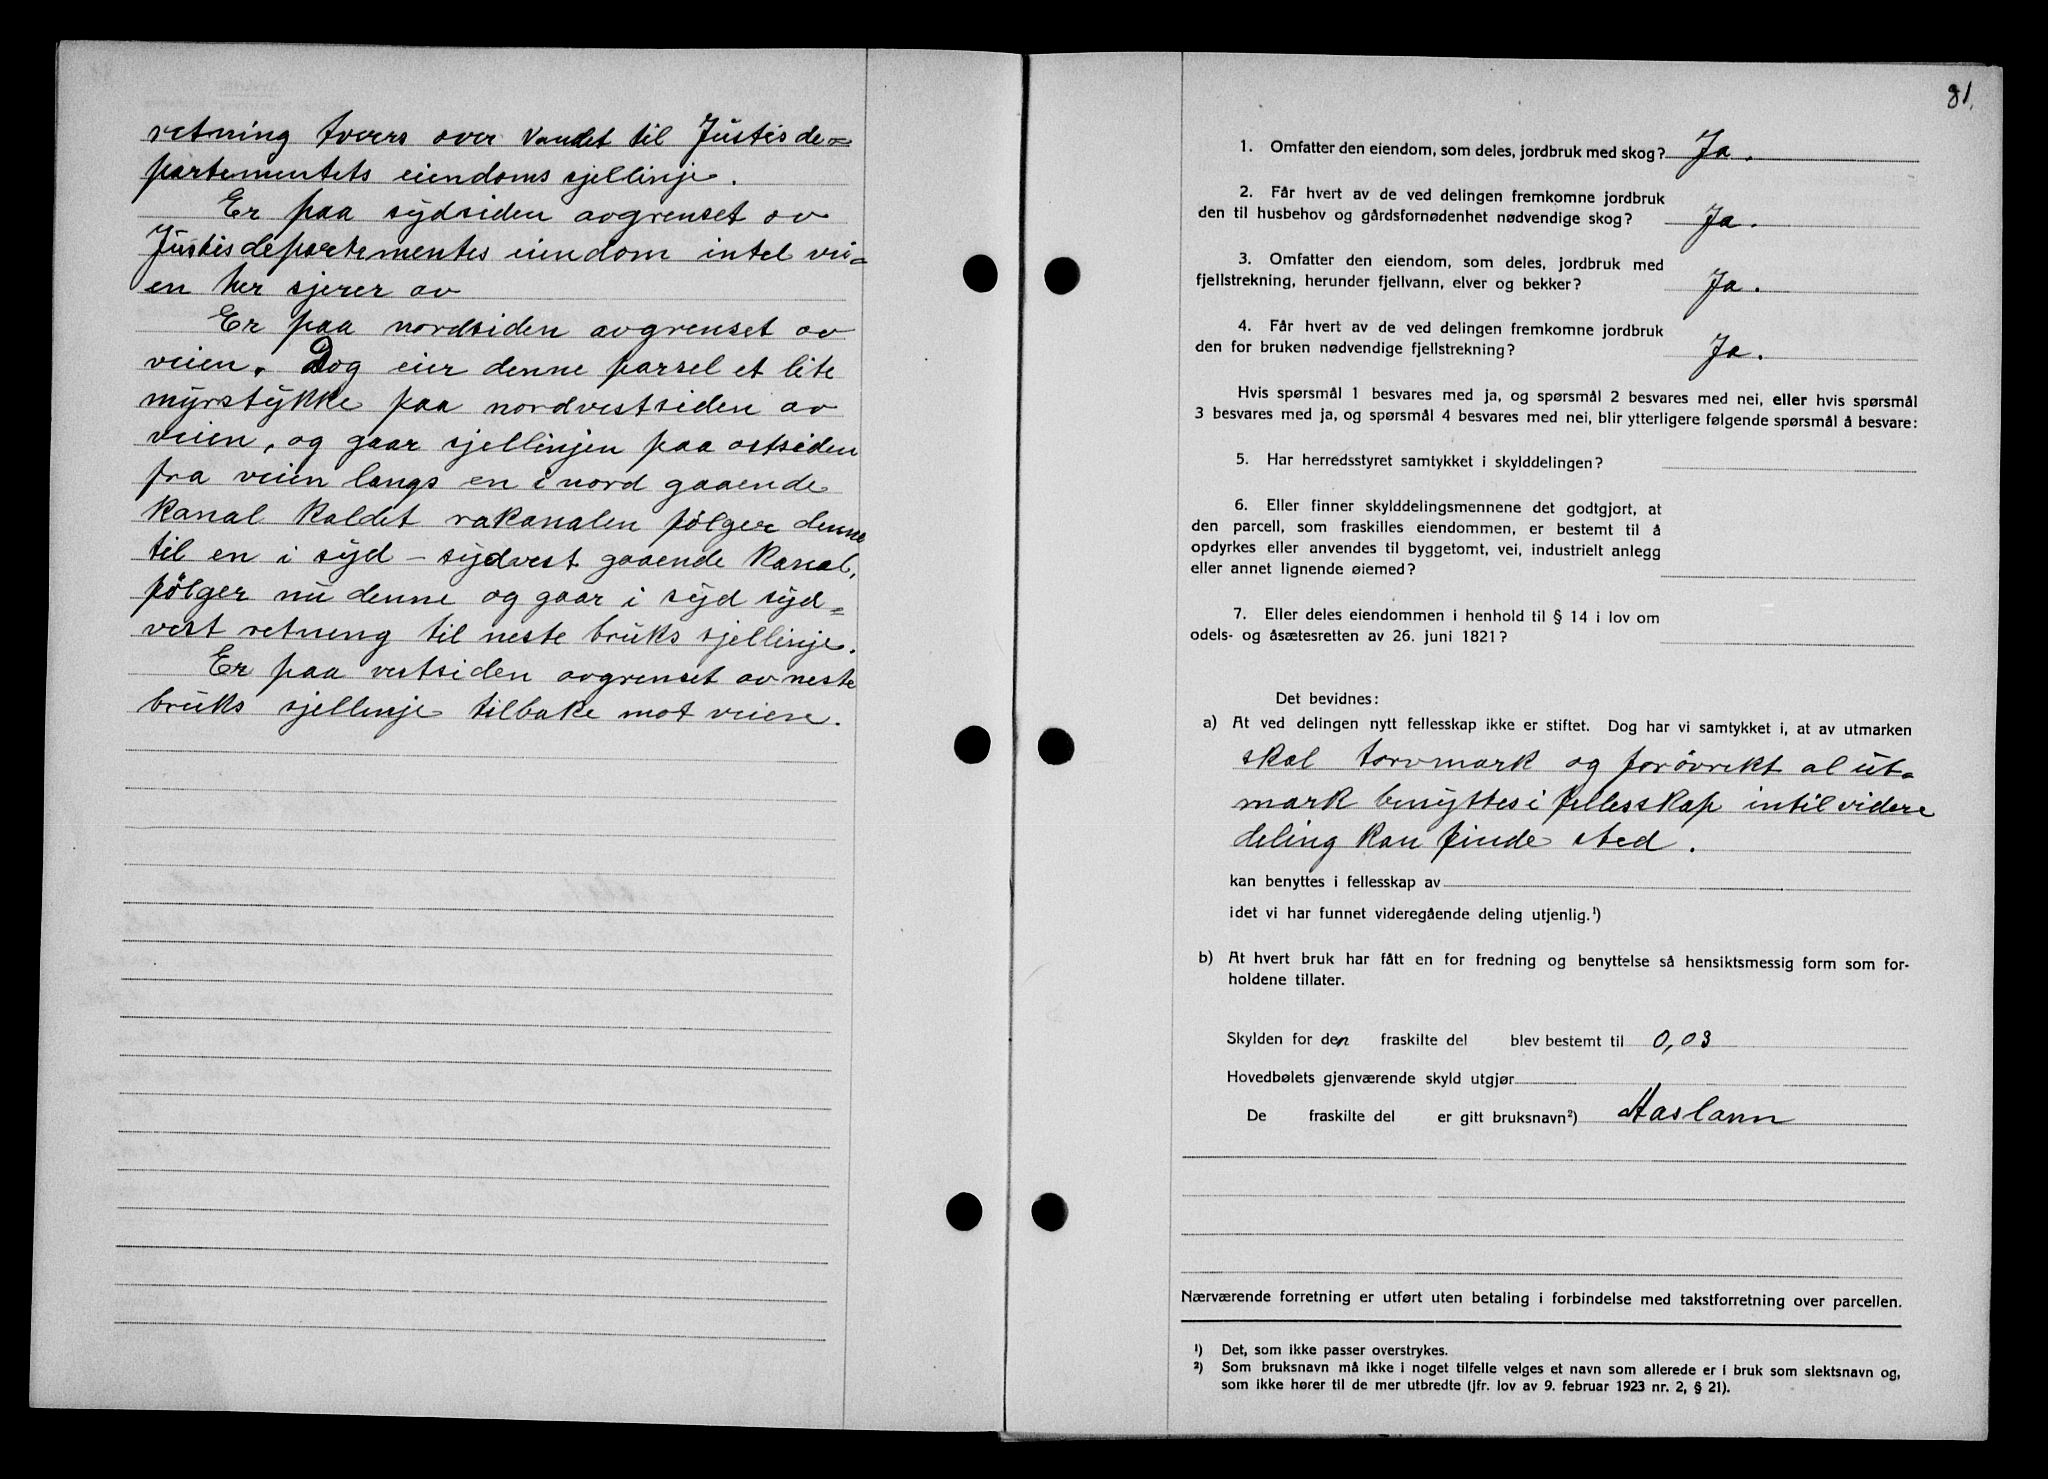 retning tvers over vandet til Justisde=
partementets eiendoms sjellinje.
Er paa sydsiden avgrenset av
Justisdepartementes eiendom intel vei=
en her sjerer av
Er paa nordsiden avgrenset av
veien. Dog eier denne parsel et lite
myrstykke paa nordvestsiden av
veien, og gaar sjellinjen paa ostsiden
fra veien langs en i nord gaaende
kanal kaldet rakanalen følger denne
til en i syd – sydvest gaaende kanal,
følger nu denne og gaar i syd syd=
vest retning til neste bruks sjellinje.
Er paa vestsiden avgrenset av neste
bruks sjellinje tilbake mot veien.
81.
1. Omfatter den eiendom, som deles, jordbruk med skog? Ja.
2. Får hvert av de ved delingen fremkomne jordbruk
den til husbehov og gårdsfornødenhet nødvendige skog? Ja.
3. Omfatter den eiendom, som deles, jordbruk med
fjellstrekning, herunder fjellvann, elver og bekker? Ja.
4. Får hvert av de ved delingen fremkomne jordbruk
den for bruken nødvendige fjellstrekning? Ja.
Hvis spørsmål 1 besvares med ja, og spørsmål 2 besvares med nei, eller hvis spørsmål
3 besvares med ja, og spørsmål 4 besvares med nei, blir ytterligere følgende spørsmål å besvare:
5. Har herredsstyret samtykket i skylddelingen?
6. Eller finner skylddelingsmennene det godtgjort, at
den parcell, som fraskilles eiendommen, er bestemt til å
opdyrkes eller anvendes til byggetomt, vei, industrielt anlegg
eller annet lignende øiemed?
7. Eller deles eiendommen i henhold til § 14 i lov om
odels- og åsætesretten av 26. juni 1821?
Det bevidnes:
a) At ved delingen nytt fellesskap ikke er stiftet. Dog har vi samtykket i, at av utmarken
skal torvmark og forøvrekt al ut=
mark benyttes i fellesskap intil videre
deling kan finde sted.
kan benyttes i fellesskap av
idet vi har funnet videregående deling utjenlig.¹)
b) At hvert bruk har fått en for fredning og benyttelse så hensiktsmessig form som for-
holdene tillater.
Skylden for den fraskilte del blev bestemt til 0,03
Hovedbølets gjenværende skyld utgjør
De fraskilte del er gitt bruksnavn²) Aaslann
Nærværende forretning er utført uten betaling i forbindelse med takstforretning over parcellen.
¹) Det, som ikke passer overstrykes.
²) Som bruksnavn må ikke i noget tilfelle velges et navn som allerede er i bruk som slektsnavn og,
som ikke hører til de mer utbredte (jfr. lov av 9. februar 1923 nr. 2, § 21).